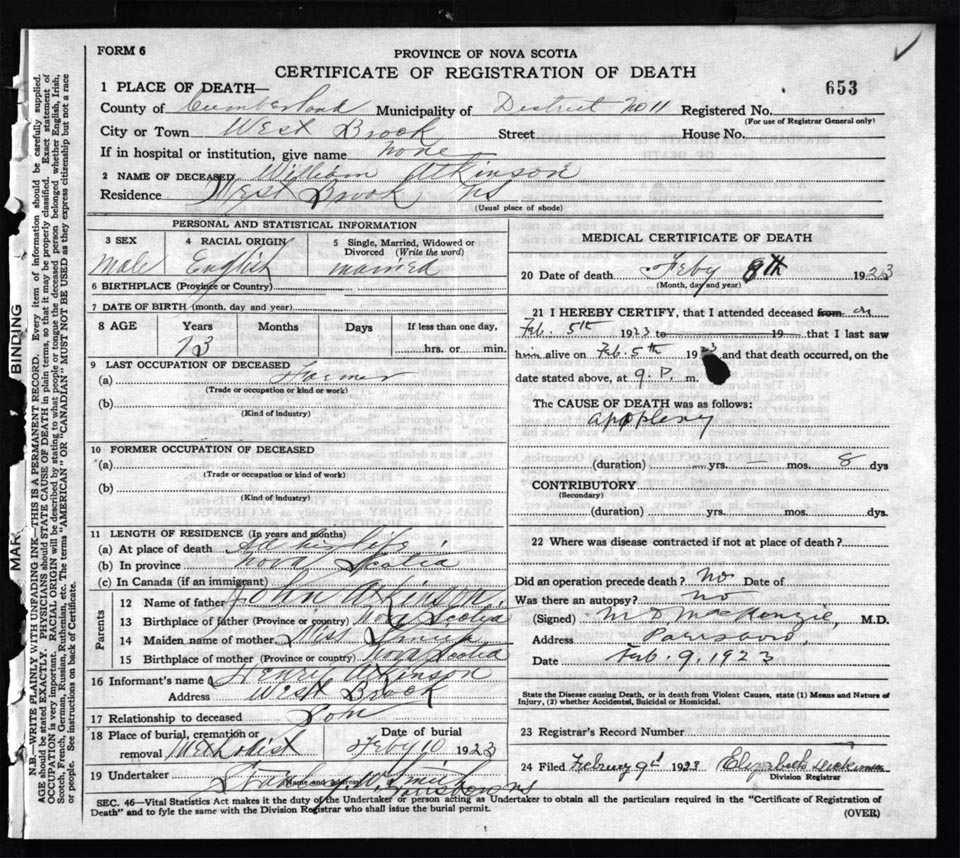 FORM 6
PROVINCE OF NOVA SCOTIA
CERTIFICATE OF REGISTRATION OF DEATH
653
1 PLACE OF DEATH—
County of Cumberland Municipality of District No 11 Registered No.
(For use of Registrar General only)
City or Town West Brook Street House No.
If in hospital or institution, give name none
2 NAME OF DECEASED William Atkinson
Residence West Brook NS
(Usual place of abode)
PERSONAL AND STATISTICAL INFORMATION
3 SEX
Male
4 RACIAL ORIGIN
English
5 Single, Married, Widowed or Divorced (Write the word)
married
6 BIRTHPLACE (Province or Country)
7 DATE OF BIRTH (month, day and year)
8 AGE Years Months Days If less than one day,
73 hrs. or min.
9 LAST OCCUPATION OF DECEASED
(a) Farmer
(Trade or occupation or kind or work)
(b)
(Kind of industry)
10 FORMER OCCUPATION OF DECEASED
(a)
(Trade or occupation or kind of work)
(b)
(Kind of industry)
11 LENGTH OF RESIDENCE (In years and months)
(a) At place of death All his life
(b) In province Nova Scotia
(c) In Canada (if an immigrant)
Parents
12 Name of father John Atkinson
13 Birthplace of father (Province or country) Nova Scotia
14 Maiden name of mother
15 Birthplace of mother (Province or country) Nova Scotia
16 Informant's name Henry Atkinson
Address West Brook
17 Relationship to deceased Son
18 Place of burial, cremation or removal Methodist
Date of burial
Feby 10 1923
19 Undertaker
MEDICAL CERTIFICATE OF DEATH
20 Date of death Feby 8th 1923
(Month, day and year)
21 I HEREBY CERTIFY, that I attended deceased from on
Feb. 5th 1923 to 19 that I last saw
him alive on Feb. 5th 1923 and that death occurred, on the
date stated above, at 9. P. m.
The CAUSE OF DEATH was as follows:
apoplexy
(duration) yrs. — mos. 8 dys
CONTRIBUTORY
(Secondary)
(duration) yrs. mos. dys.
22 Where was disease contracted if not at place of death?
Did an operation precede death? No Date of
Was there an autopsy? No
(Signed) M D MacKenzie, M.D.
Address Parrsboro,
Date Feb. 9. 1923
State the Disease causing Death, or in death from Violent Causes, state (1) Means and Nature of
Injury, (2) whether Accidental, Suicidal or Homicidal.
23 Registrar's Record Number
24 Filed February 9th 1923 Elizabeth
Division Registrar
SEC. 46—Vital Statistics Act makes it the duty of the Undertaker or person acting as Undertaker to obtain all the particulars required in the "Certificate of Registration of
Death" and to fyle the same with the Division Registrar who shall issue the burial permit.
(OVER)
MAR
BINDING
N.B.—WRITE PLAINLY WITH UNFADING INK—THIS IS A PERMANENT RECORD. Every item of information should be carefully supplied.
AGE should be stated EXACTLY. PHYSICIANS should STATE CAUSE OF DEATH in plain terms, so that it may be properly classified. Exact statement of
OCCUPATION is very important. RACIAL ORIGIN will be described by stating to what people or tongue the deceased person belonged whether English, Irish,
Scotch, French, German, Russian, Ruthenian, etc. The terms "AMERICAN" OR "CANADIAN" MUST NOT BE USED as they express citizenship but not a race
or people. See instructions on back of Certificate.